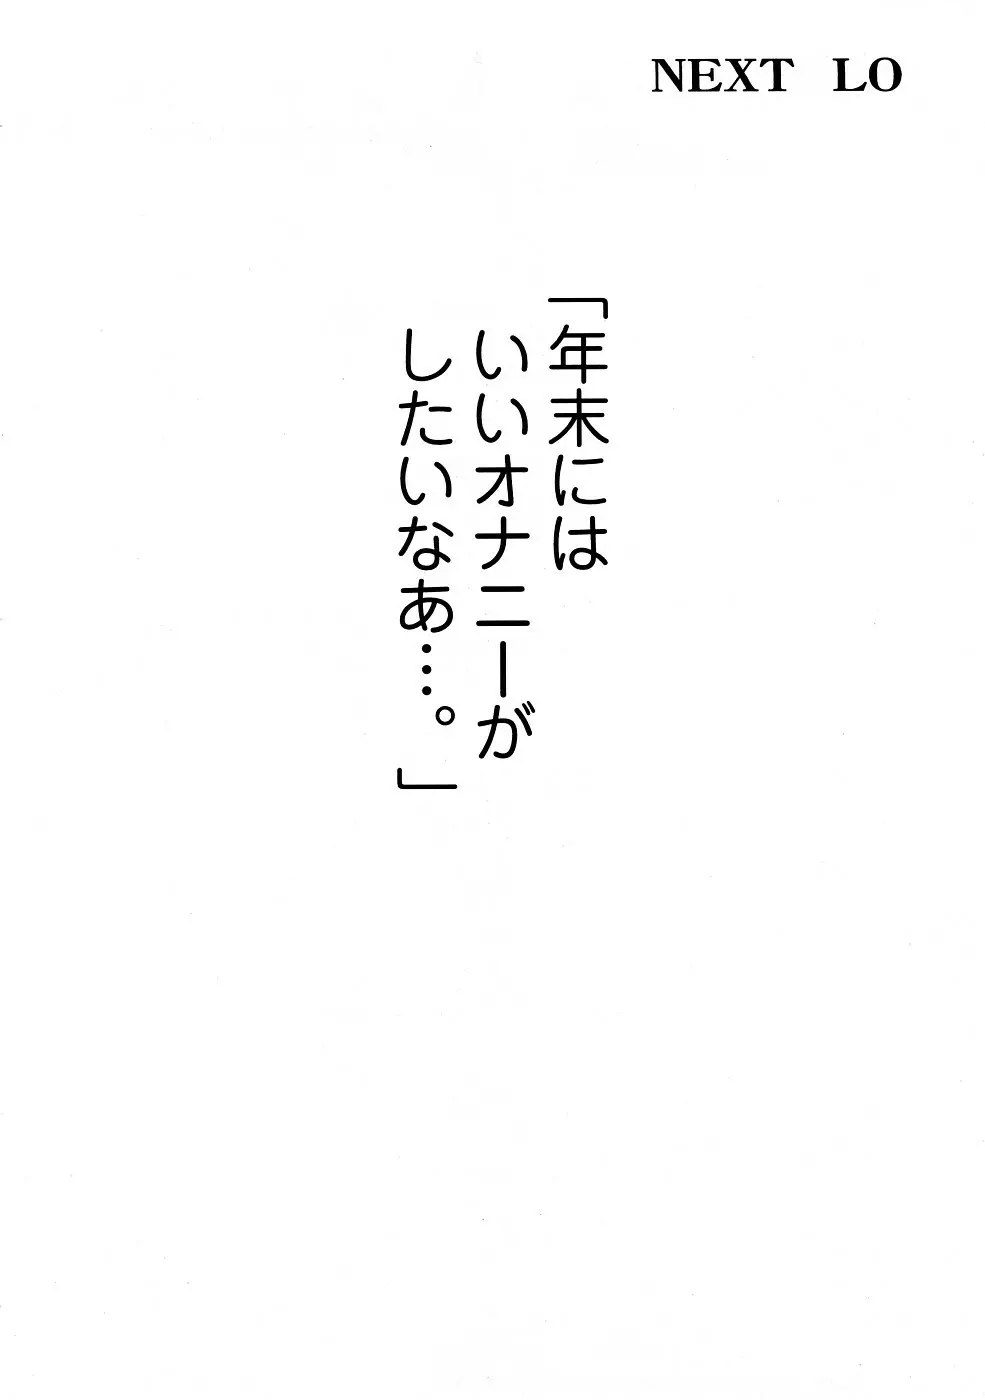 NEXT LO
「年末には
いいオナニーが
したいなあ…。」